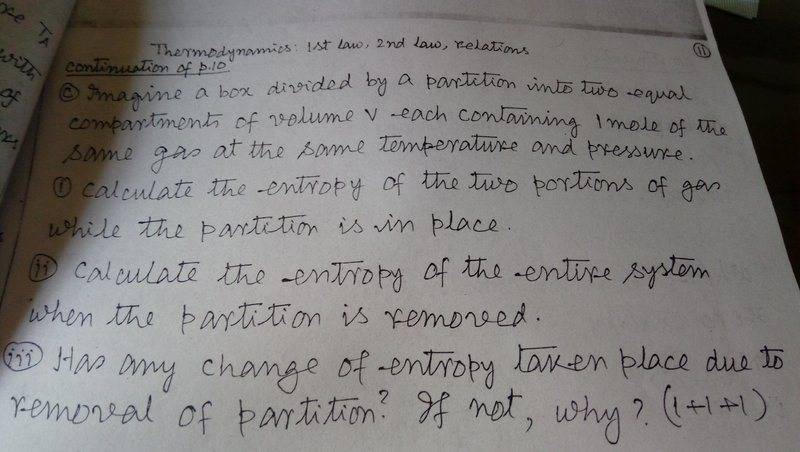 Thermodynamics: 1st law, 2nd law, relations
11
continuation of p.10
with
of
c Imagine a box divided by a partition into two equal
compartments of volume V each containing 1 mole of the
same gas at the same temperature and pressure.
i calculate the entropy of the two portions of gas
while the partition is in place.
ii calculate the entropy of the entire system
when the partition is removed.
iii Has any change of entropy taken place due to
removal of partition? If not, why? (1+1+1)